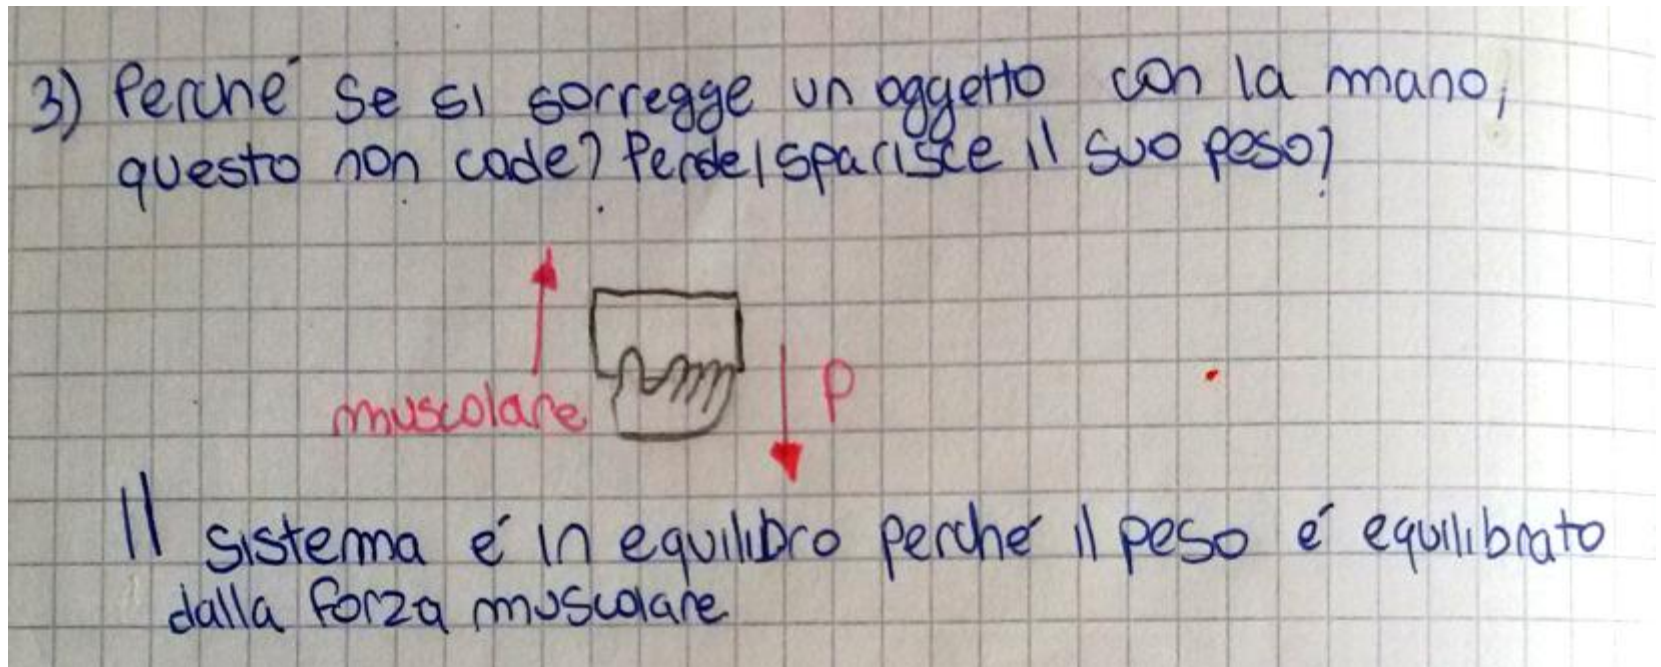 3) Perché se si sorregge un oggetto con la mano,
questo non cade? Perde/sparisce il suo peso?
muscolare
P
Il sistema é in equilibro perché il peso é equilibrato
dalla forza muscolare